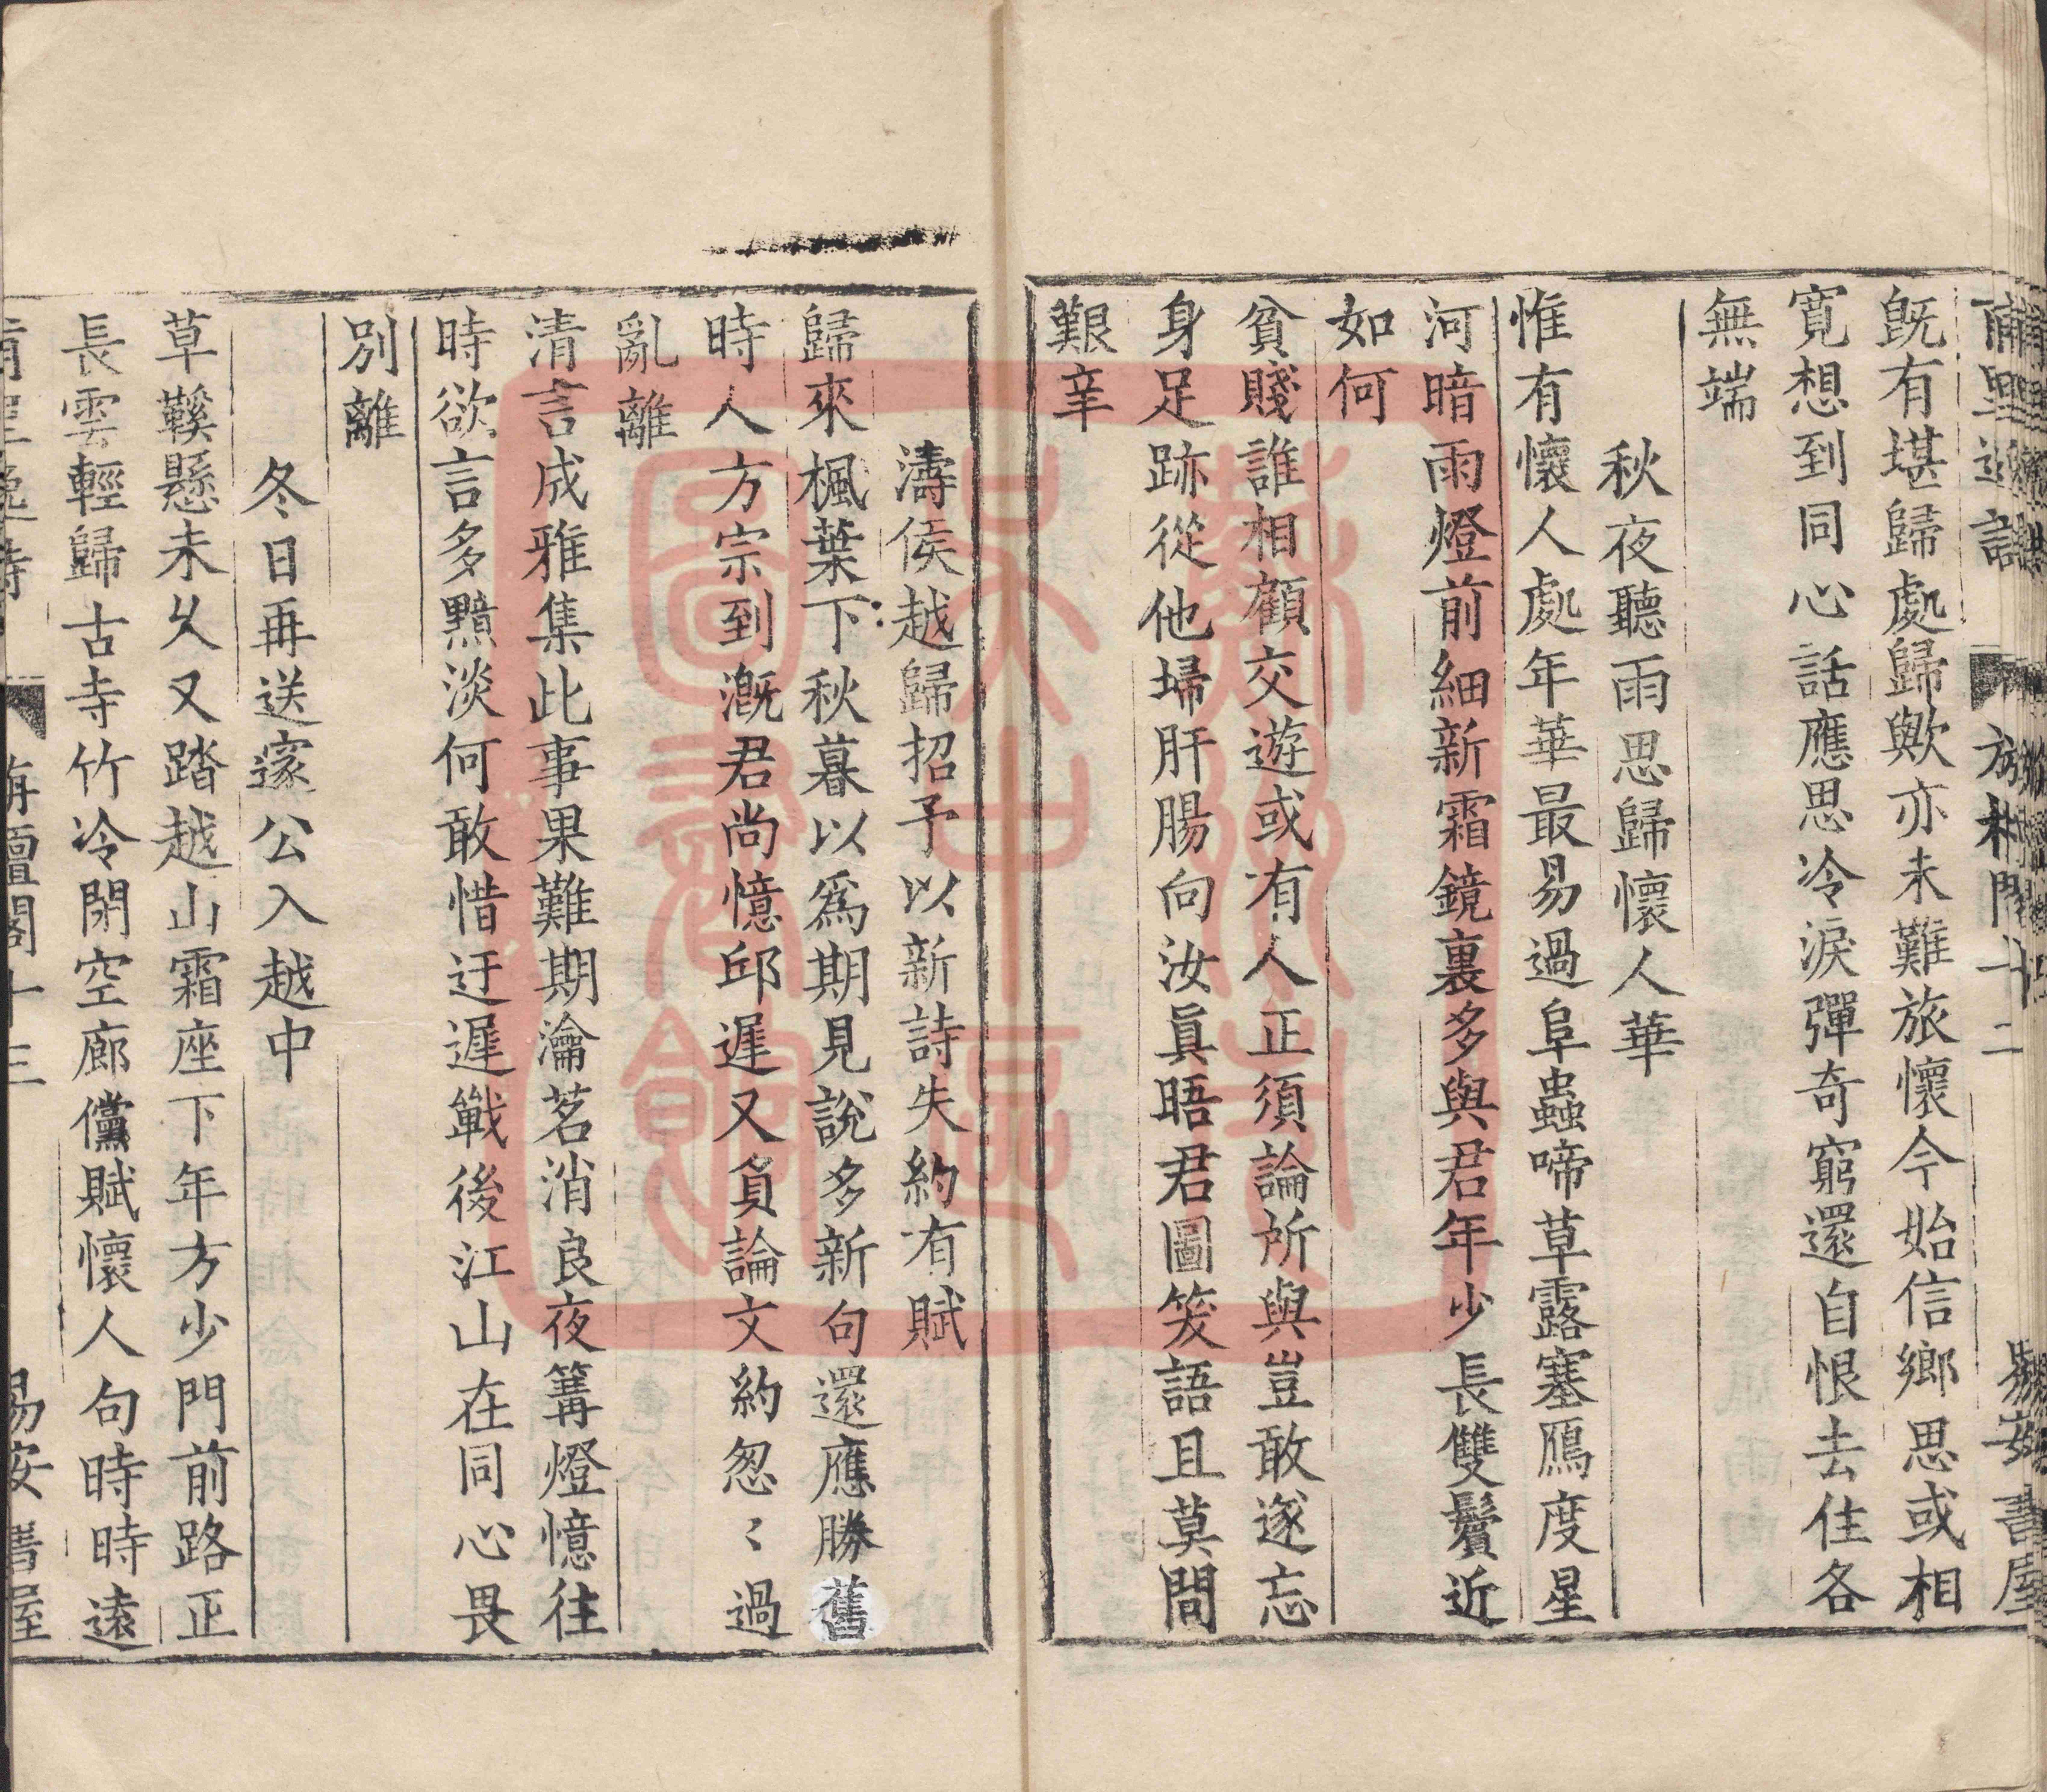 既有堪歸處歸歟亦未難旅懷今始信鄉思或相
寬想到同心話應思冷淚彈奇窮還自恨去住各
無端
秋夜聽雨思歸懷人華
惟有懷人處年華最易過阜蟲啼草露塞鴈度星
河暗雨燈前細新霜鏡裏多與君年少長雙鬢近
如何
貧賤誰相顧交遊或有人正須論所與豈敢遂忘
身足跡從他埽肝腸向汝眞晤君圖笑語且莫問
艱辛
濤侯越歸招予以新詩失約有賦
歸來楓葉下秋暮以爲期見說多新句還應勝舊
時人方宗到漑君尚憶邱遲又負論文約怱〻過
亂離
清言成雅集此事果難期瀹茗消良夜篝燈憶往
時欲言多黯淡何敢惜迂遲戰後江山在同心畏
別離
冬日再送窓公入越中
草鞵懸未久又踏越山霜座下年方少門前路正
長雲輕歸古寺竹冷閉空廊儻賦懷人句時時遠
蘇州大學圖書館